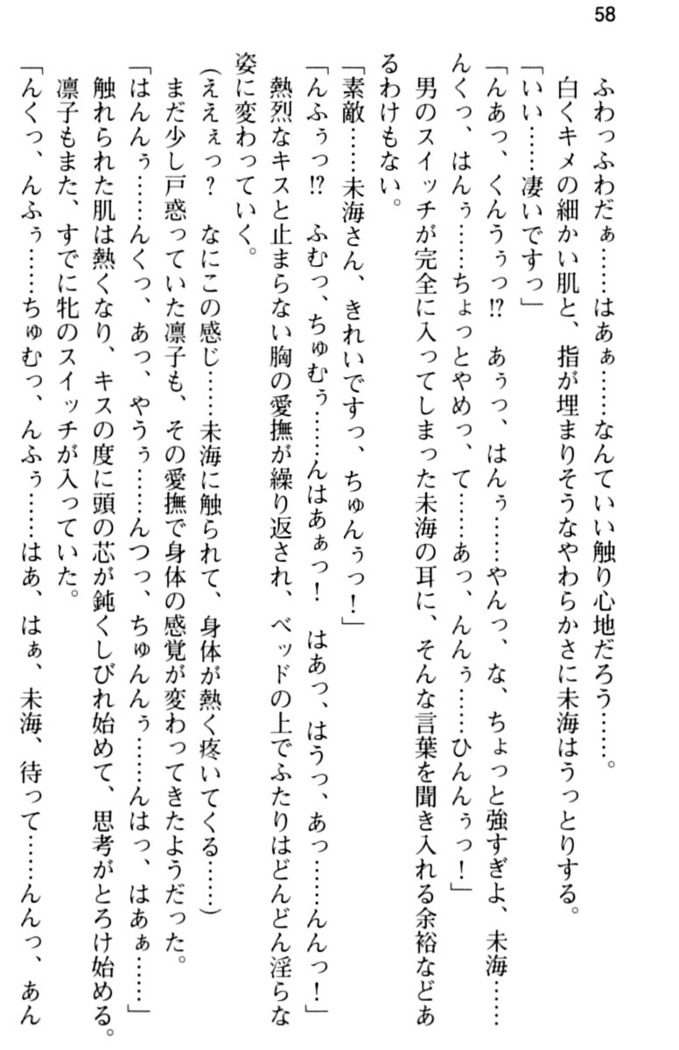 58
ふわっふわだぁ……はあぁ……なんていい触り心地だろう……。
白くキメの細かい肌と、指が埋まりそうなやわらかさに未海はうっとりする。
「いい……凄いですっ」
「んあっ、くんうぅっ!? あぅっ、はんぅ……やんっ、な、ちょっと強すぎよ、未海……
んくっ、はんぅ……ちょっとやめっ、て……あっ、んんぅ……ひんんぅっ！」
男のスイッチが完全に入ってしまった未海の耳に、そんな言葉を聞き入れる余裕などあ
るわけもない。
「素敵……未海さん、きれいですっ、ちゅんぅっ！」
「んふぅっ!? ふむっ、ちゅむぅ……んはあぁっ！ はあっ、はうっ、あっ……んんっ！」
熱烈なキスと止まらない胸の愛撫が繰り返され、ベッドの上でふたりはどんどん淫らな
姿に変わっていく。
(ええぇっ？ なにこの感じ……未海に触られて、身体が熱く疼いてくる……)
まだ少し戸惑っていた凛子も、その愛撫で身体の感覚が変わってきたようだった。
「はんんぅ……んくっ、あっ、やうぅ……んつっ、ちゅんんぅ……んはっ、はあぁ……」
触れられた肌は熱くなり、キスの度に頭の芯が鈍くしびれ始めて、思考がとろけ始める。
凛子もまた、すでに牝のスイッチが入っていた。
「んくっ、んふぅ……ちゅむっ、んふぅ……はあ、はぁ、未海、待って……んんっ、あん